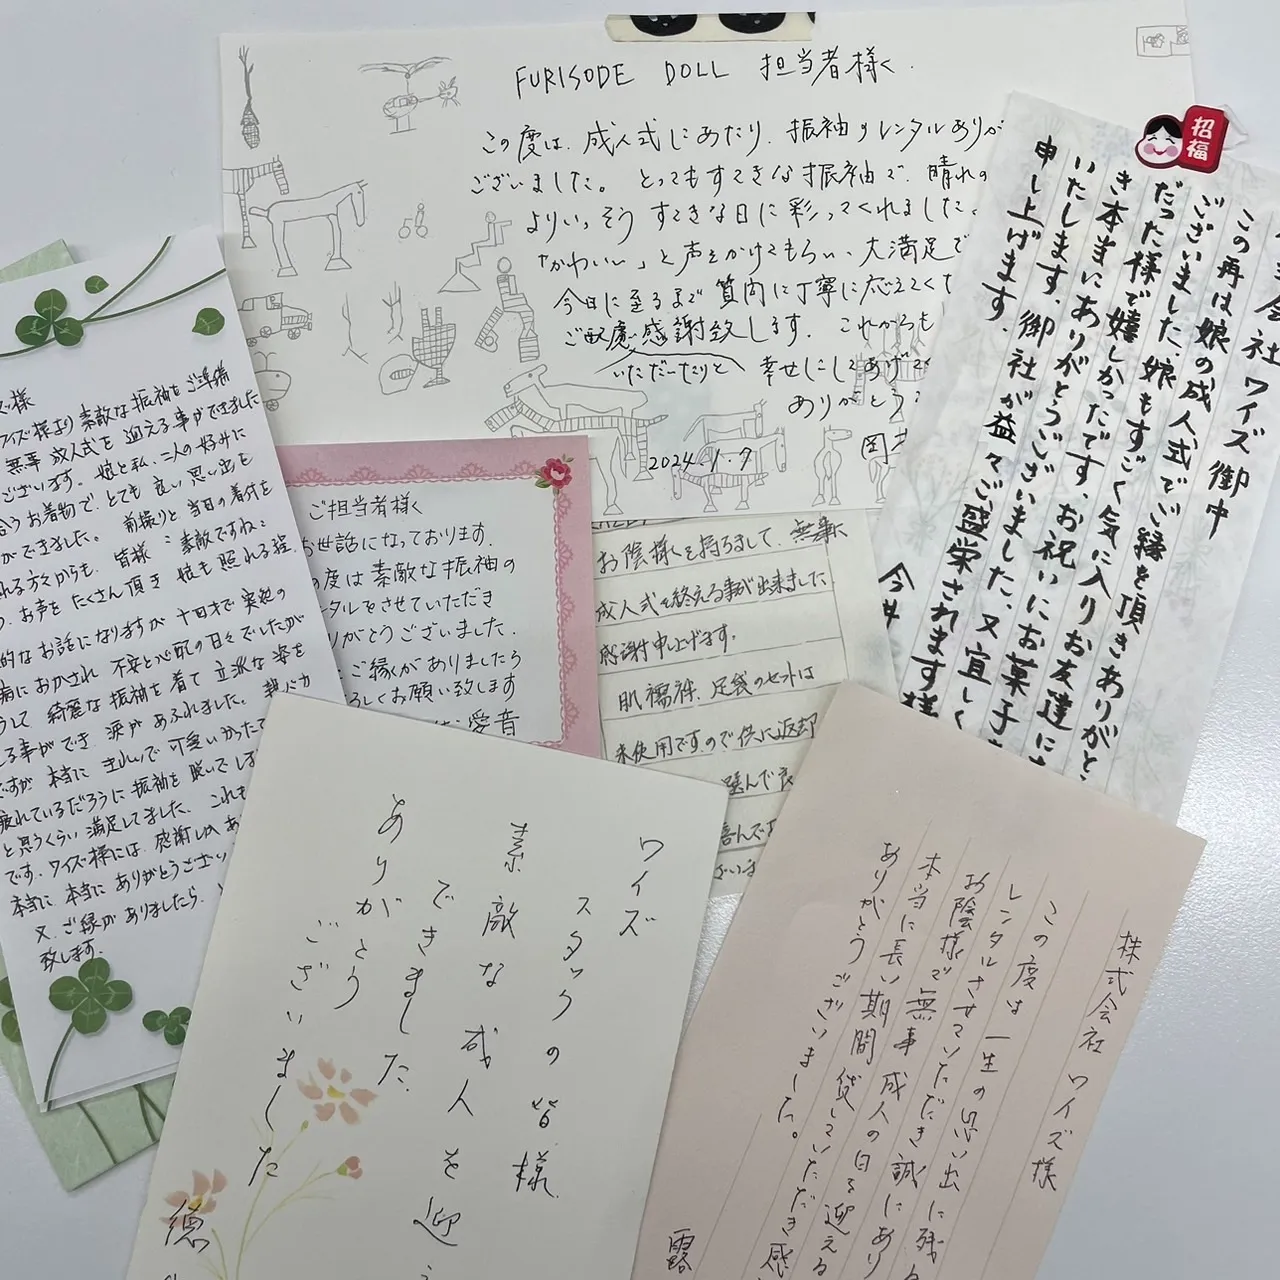 FURISODE DOLL 担当者様
この度は、成人式にあたり、振袖のレンタルありが
ございました。とってもすてきな振袖で、晴れの
よりいっそう すてきな日に彩ってくれました。
「かわいい」と声をかけてもらい、大満足で
今日に至るまで 質問に丁寧に応えてくだ
ご配慮 感謝致します。これからも
いただいたりと 幸せにしてあげて
ありがとう
2024.1.9
招福
ワイズ御中
この再は娘の成人式でご縁を頂きありがと
ございました、娘もすごく気に入りお友達に
だった様で嬉しかったです。お祝いにお菓子
き本当にありがとうございました、又宜しく
いたします、御社が益々ご盛栄されます様
申し上げます。
今井
様
ワイズ様より素敵な振袖をご準備
無事 成人式を 迎える事ができました
ございます。娘と私、二人の好みに
合うお着物で、とても良い思い出を
ができました。前撮りと当日の着付を
れる方々からも、皆様に素敵ですね
お声をたくさん頂き 娘も照れる程
的なお話になりますが 十日才で
病におかされ 不安と心配の日々でしたが
して 綺麗な振袖を着て 立派な姿を
る事ができ 涙があふれました。親バカ
ですが 本当に きれいで 可愛いかった
疲れているだろうに振袖を脱いで
と思うくらい 満足してました。これも
です。ワイズ様には、感謝しか
本当に、本当に ありがとうござい
又、ご縁がありましたら、
致します。
ご担当者様
お世話になっております。
の度は素敵な振袖の
タルをさせていただき
りがとうございました。
ご縁がありましたら
ろしくお願い致します
愛音
お陰様を持ちまして、無事に
成人式を終える事が出来ました
感謝申上げます。
肌襦袢、足袋のセットは
未使用ですので供に返却
ワイズ
スタッフの皆様
素敵な成人を迎
できました。
ありがとう
ございました
徳
株式会社 ワイズ様
この度は一生の思い出に残る
レンタルさせていただき誠にあり
お陰様で無事成人の日を迎える
本当に長い期間貸していただき感
ありがとうございました。
露